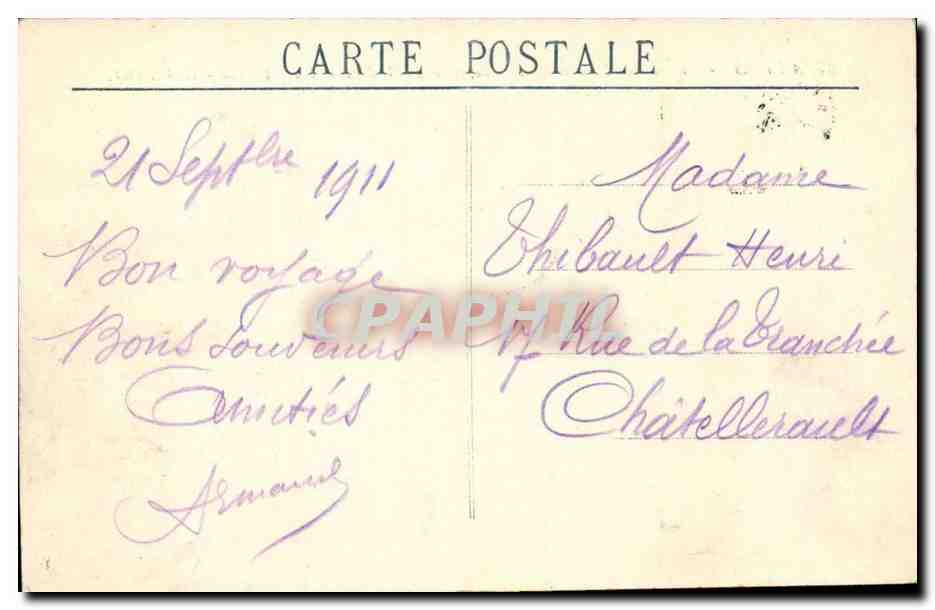 CARTE POSTALE
21 Septbre 1911
Bon voyage
Bons souvenirs
Amitiés
Armand
Madame
Thibault Henri
17 Rue de la Tranchée
Châtellerault
CPAPHIL